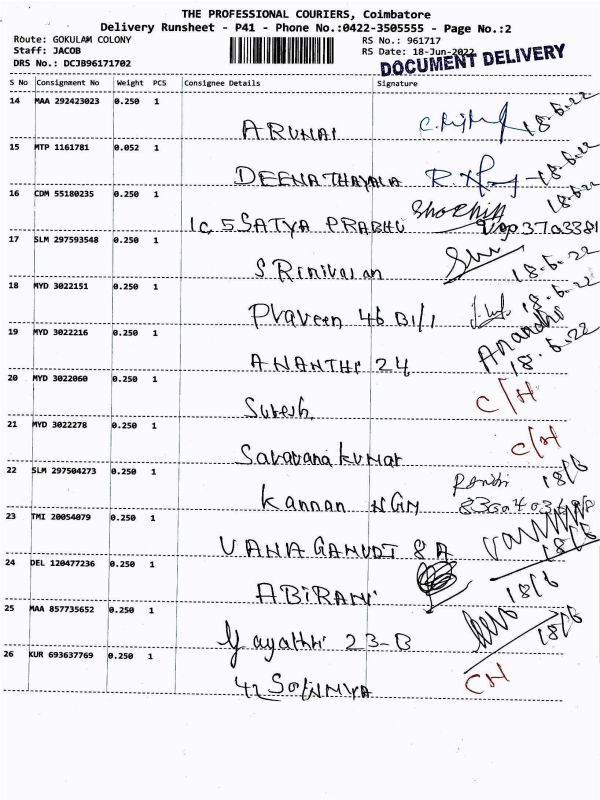 THE PROFESSIONAL COURIERS, Coimbatore
Delivery Runsheet - P41 - Phone No.:0422-3505555 - Page No.:2
Route: GOKULAM COLONY RS No.: 961717
Staff: JACOB RS Date: 18-Jun-2022
DRS No.: DCJB96171702 DOCUMENT DELIVERY
S No Consignment No Weight PCS Consignee Details Signature
14 MAA 292423023 0.250 1
ARUNAI 18.6.22
15 MTP 1161781 0.052 1
DEENATHAYALA 18.6.22
16 CDM 55180235 0.250 1 18.6.22
1C 5 SATYA PRABHU
17 SLM 297593548 0.250 1
SRinivasan 18.6.22
18 MYD 3022151 0.250 1 18.6.22
Praveen 46 B1/1
19 MYD 3022216 0.250 1 Anandhi
ANANTHI 24 18.6.22
20 MYD 3022060 0.250 1 C/H
Suresh
21 MYD 3022278 0.250 1 C/H
Saravanakumar
22 SLM 297504273 0.250 1 18/6
Kannan NGM
23 TMI 20054079 0.250 1
VANAGAMUDI 8A 18/6
24 DEL 120477236 0.250 1
ABIRAMI 18/6
25 MAA 857735652 0.250 1 18/6
Gayathri 23-B
26 KUR 693637769 0.250 1 CH
42 SOWMYA